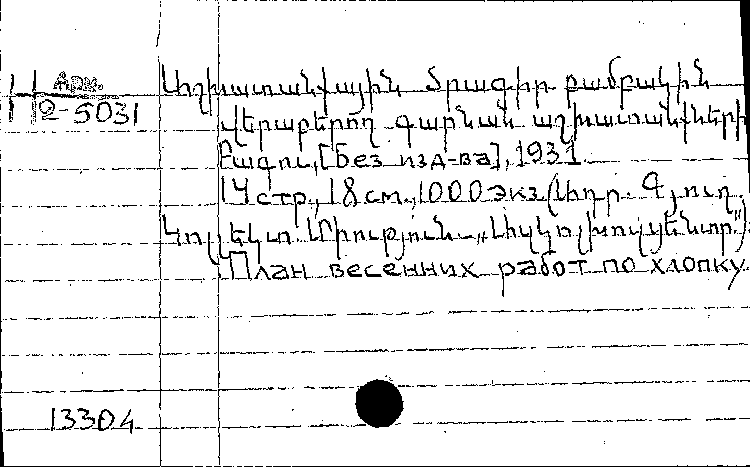 Арм.
2-5031
Աշխատանքային ծրագիր բամբակին
վերաբերող գարնան աշխատանքների
Բագու, [Без изд-ва], 1931.
14 стр., 18 см., 1000 экз. (Ադր. Գյուղ.
Կոլեկտ. Միություն „Ադկոլխոզցենտր").
План весенних работ по хлопку
13304